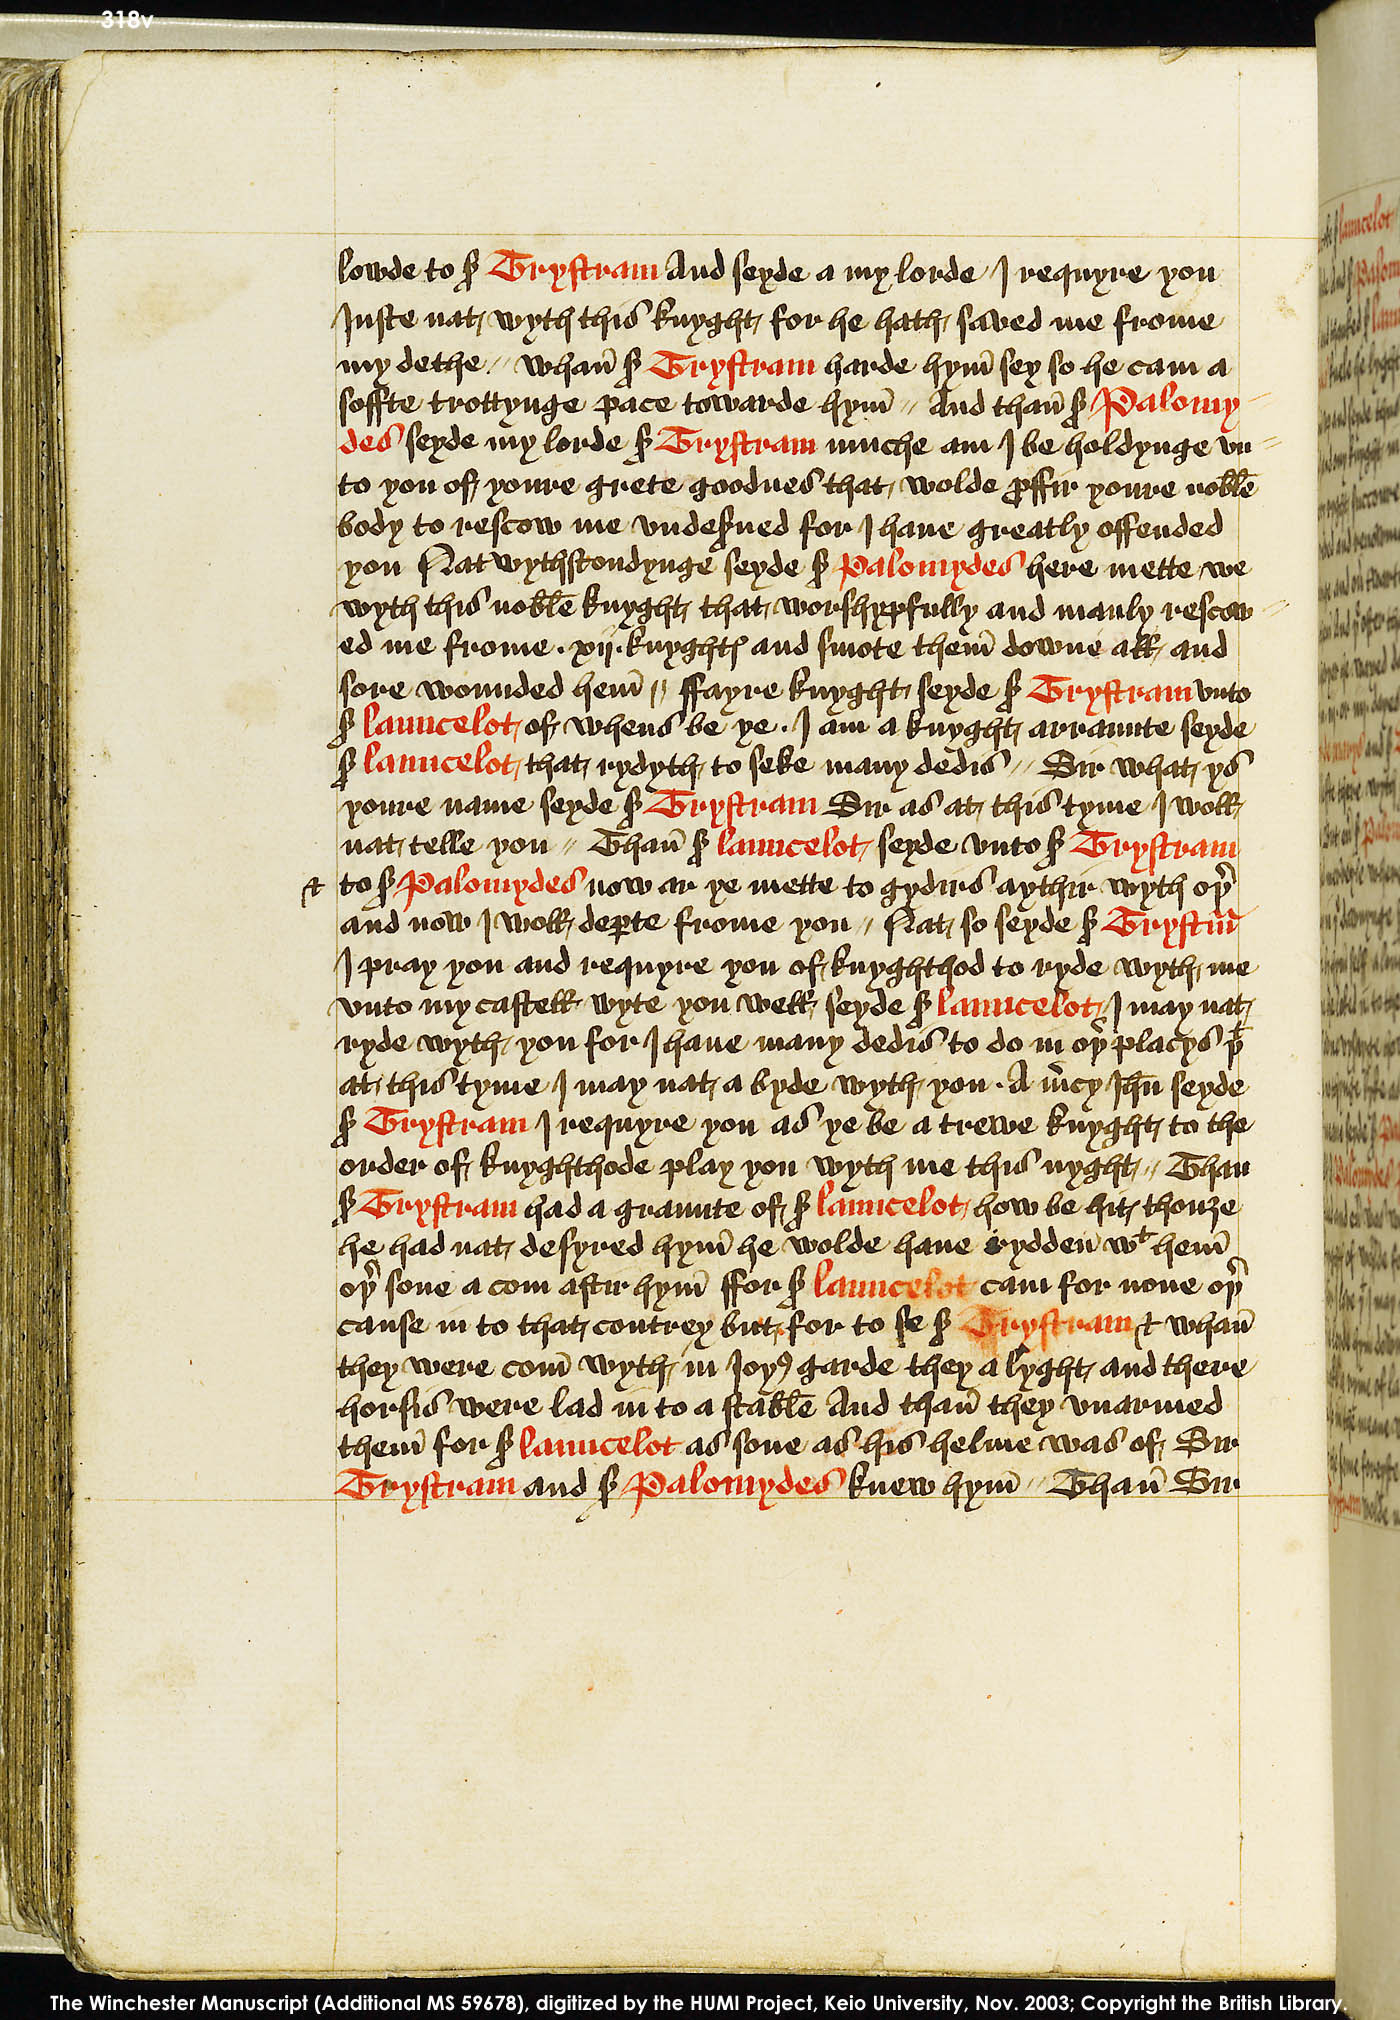 318v
lowde to sr̃ Trystram And seyde a my lorde I requyre you
Juste nat wyth this knyght for he hath saved me frome
my dethe // whan̄ sr̃ Trystram harde hym̄ sey so he cam a
soffte trottynge pace towarde hym̄ // And than̄ sr̃ Palomy-
des seyde my lorde sr̃ Trystram muche am I be holdynge vn=
to you of youre grete goodnes that wolde ꝓffir youre noblē
body to rescow me vndeẜued for I haue greatly offended
you Nat wythstondynge seyde sr̃ Palomydes here mette we
wyth this noblē knyght that worshypfully and manly rescow=
ed me frome · xij · knyghtꝭ and smote them̄ downe aƚƚ and
sore wounded hem̄ // ffayre knyght seyde sr̃ Trystram vnto
sr̃ launcelot of whens be ye · I am a knyght arraunte seyde
sr̃ launcelot that rydyth to seke many dedis // Sir what ys
youre name seyde sr̃ Trystram Sir as at this tyme I woƚƚ
nat telle you // Than̄ sr̃ launcelot seyde vnto sr̃ Trystram
⁊ to sr̃ Palomydes now ar ye mette to gydirs aythir wyth oþ̃
and now I woƚƚ deꝑte frome you // Nat so seyde sr̃ Trystm̃
I pray you and requyre you of knyghthod to ryde wyth me
vnto my casteƚƚ wyte you weƚƚ seyde sr̃ launcelot I may nat
ryde wyth you for I haue many dedis to do in oþ̃ placys þᵗ
at this tyme I may nat a byde wyth you · A m̃cy Jħu seyde
sr̃ Trystram I requyre you as ye be a trewe knyght to the
order of knyghthode play you wyth me this nyght // Than
sr̃ Trystram had a graunte of sr̃ launcelot how be hit thouȝe
he had nat desyred hym̄ he wolde haue rydden̄ wᵗ hem̄
oþ̃ sone a com aftir hym̄ ffor sr̃ launcelot cam for none oþ̃
cause in to that contrey but for to se sr̃ Trystram ⁊ whan̄
they were com̄ wyth in Joyꝰ garde they a lyght and there
horsis were lad in to a stablē And than̄ they vnarmed
them̄ for sr̃ launcelot as sone as his helme was of Sir
Trystram and sr̃ Palomydes knew hym̄ // Than̄ Sir
The Winchester Manuscript (Additional MS 59678), digitized by the HUMI Project, Keio University, Nov. 2003; Copyright the British Library.